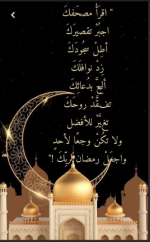 " اقرأْ مصحَفكَ
اجبُرْ تقصيرَكَ
أطِلْ سجُودَكَ
زِدْ نوافلَكَ
ألِحَّ بدُعائِكَ
تفَقَّدْ روحَكَ
تغيَّرْ للأفضل
ولا تكُنْ وجعًا لأحدٍ
واجعَلْ رمضانَ لرَبِّكَ !"